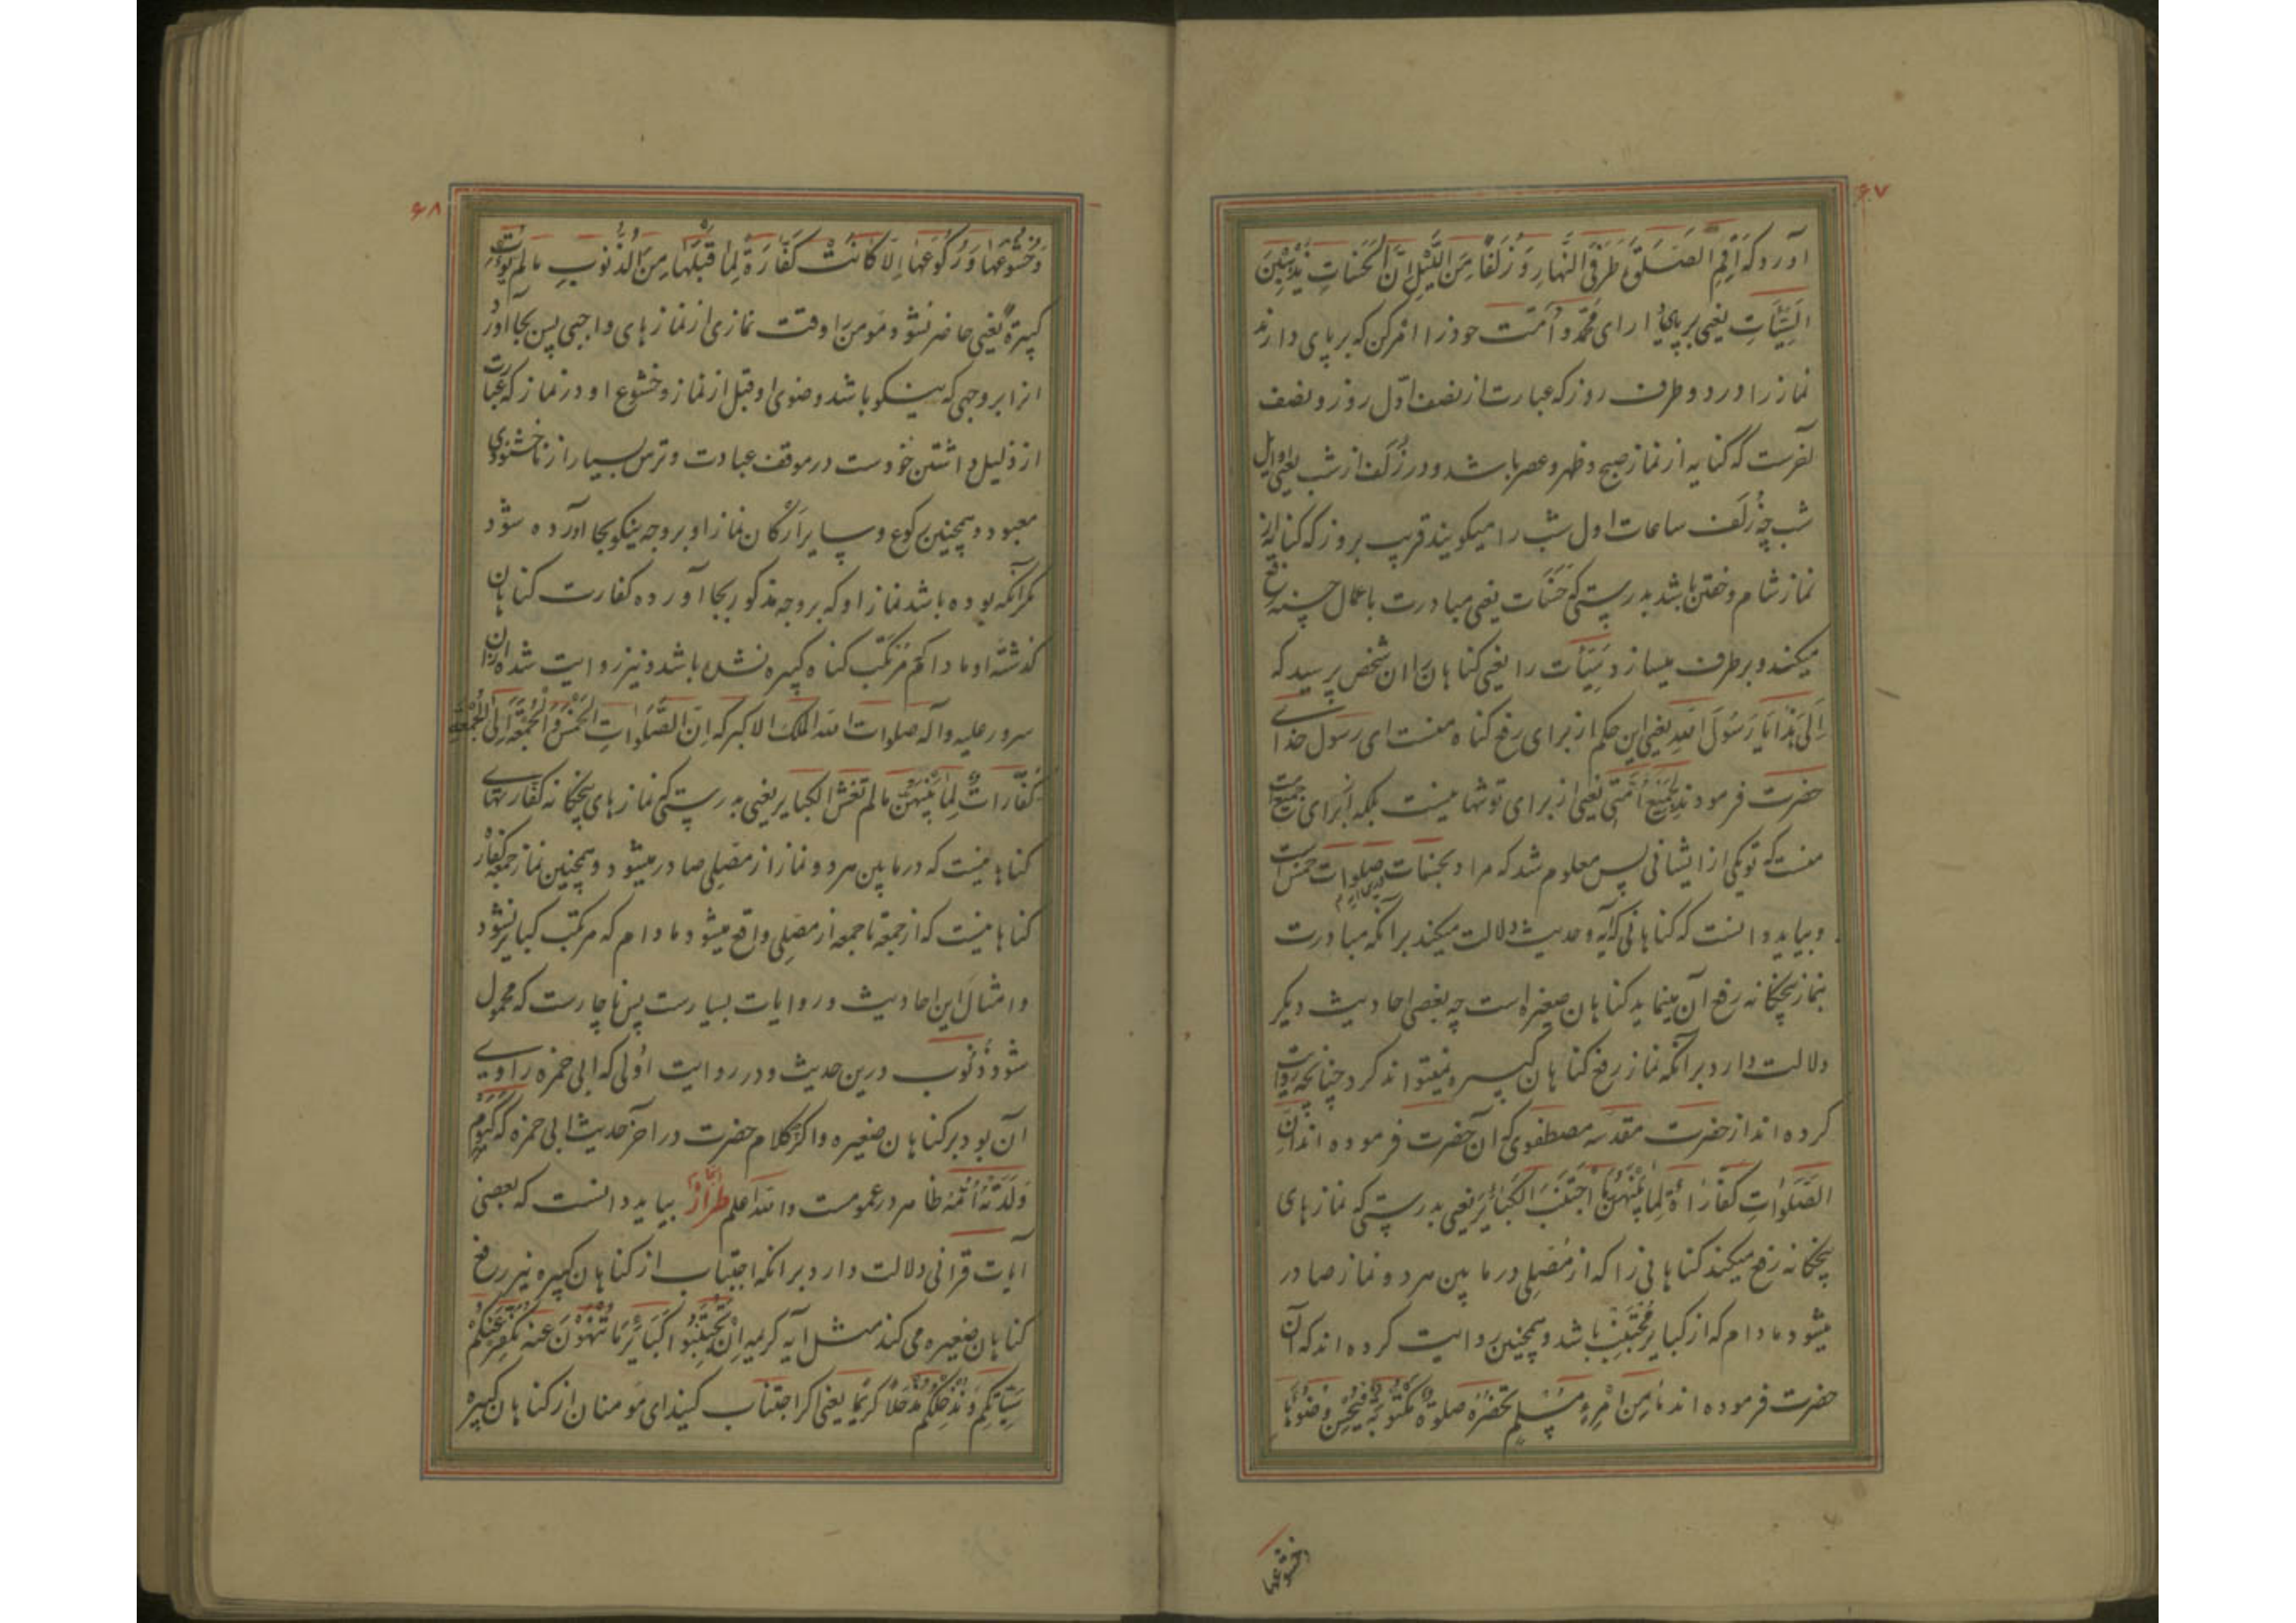 ۶۷
آورد که أَقِمِ الصَّلَوةَ طَرَفَیِ النَّهارِ وَ زُلَفًا مِنَ اللَّیْلِ اِنَّ الْحَسَناتِ یُذْهِبْنَ
السَّیِّئاتِ یعنی بر پای دار ای محمّد و اُمّت خود را امر کن که بر پای دارند
نماز را در دو طرف روز که عبارت از نصف اوّل روز و نصف
آخرست که کنایه از نماز صبح و ظهر و عصر باشد و در زُلَف از شب یعنی اوایل
شب چه زُلَف ساعات اول شب را میکویند قریب بروز که کنایه از
نماز شام و خفتن باشد بدرستی که حَسَنات یعنی مبادرت باعمال حسنه رفع
میکند و بر طرف میسازد سَیِّئات را یعنی کناهان را ان شخص پرسید که
اِلَیَّ هٰذا یا رَسُولَ اللّهِ یعنی این حکم از برای رفع کناه منست ای رسول خدا
حضرت فرمودند لِجَمیعِ اُمَّتی یعنی از برای تو تنها نیست بلکه از برای جمیع امت
منست که تو یکی از ایشانی پس معلوم شد که مراد بحسنات صلوات خمس است
و بباید دانست که کناهانی که آیه و حدیث دلالت میکند بر آنکه مبادرت
بنماز پنجکانه رفع آن مینماید کناهان صغیره است چه بعضی احادیث دیکر
دلالت دارد بر آنکه نماز رفع کناهان کبیره نمیتواند کرد چنانچه روایت
کرده اند از حضرت مقدسه مصطفوی که ان حضرت فرموده اند اِنَّ
الصَّلَواتِ کَفّاراةٌ لِما بَیْنَهُنَّ مَا اجْتَنَبَ الْکَبائِرَ یعنی بدرستی که نماز های
پنجکانه رفع میکند کناهانی را که از مُصَلّی در ما بین هر دو نماز صادر
میشود مادام که از کبایر مُجْتَنِب باشد و همچنین روایت کرده اند که آن
حضرت فرموده اند ما مِنِ امْرِءٍ مُسْلِمٍ تَحْضُرُهُ صَلوةٌ مَکْتُوبَةٌ فَیُحْسِنُ وُضُوءَها
وخشوعها
۶۸
وَ خُشُوعَها وَ رُکُوعَها اِلّا کانَتْ کَفّارَةً لِما قَبْلَها مِنَ الذُّنُوبِ مالم یُؤْتَ
کبیرةً یعنی حاضر نشود مومن را وقت نمازی از نماز های واجبی پس بجا آورد
انرا بر وجهی که نیکو باشد وضوی او قبل از نماز و خشوع او در نماز که عبارت
از ذلیل داشتن خودست در موقف عبادت و ترس بسیار از ناخشنودی
معبود و همچنین رکوع و سایر ارکان نماز او بر وجه نیکو بجا آورده شود
مکر آنکه بوده باشد نماز او که بر وجه مذکور بجا آورده کفارت کناهان
کذشته او مادام که مرتکب کناه کبیره نشده باشد و نیز روایت شده از ان
سرور علیه و آله صلوات الله الملک الاکبر که اِنَّ الصَّلَواتِ الْخَمْسَ وَ الْجُمُعَةَ اِلَی الْجُمُعَةِ
کَفّاراتٌ لِما بَیْنَهُنَّ مالم تَغْشَ الکبایر یعنی بدرستی که نماز های پنجکانه کفارتهای
کناهانیست که در ما بین هر دو نماز از مصلی صادر میشود و همچنین نماز جمعه کفّاره
کناهانیست که از جمعه تا جمعه از مصلی واقع میشود مادام که مرتکب کبایر نشود
و امثال این احادیث و روایات بسیارست پس ناچارست که محمول
شود ذُنُوب درین حدیث و در روایت اُولی که ابی حمزه راوی
آن بود بر کناهان صغیره و اکرچه کلام حضرت در آخر حدیث ابی حمزه که کَیَوْمَ
وَلَدَتْهُ اُمُّهُ ظاهر در عمومست و الله اعلم طرازٌ بباید دانست که بعضی
آیات قرانی دلالت دارد بر انکه اجتناب از کناهان کبیره نیز رفع
کناهان صغیره می کند مثل آیه کریمه اِنْ تَجْتَنِبُوا کَبائِرَ ما تُنْهَوْنَ عَنه نُکَفِّرْ عَنْکُمْ
سَیِّئاتِکُم وَ نُدْخِلْکُم مُدْخَلاً کریمًا یعنی اکر اجتناب کنید ای مومنان از کناهان کبیره